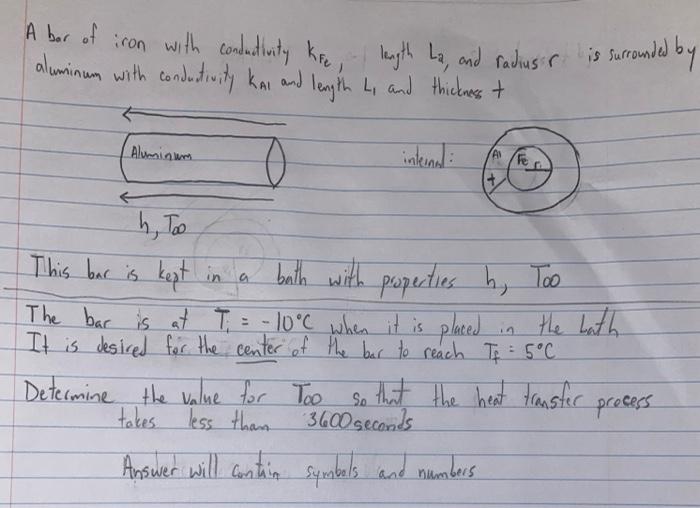 A bar of iron with conductivity kFe, length L2, and radius r is surrounded by
aluminum with conductivity kAl and length L1 and thickness t
Aluminum
internal:
Al
Fe
r
t
h, T∞
This bar is kept in a bath with properties h, T∞
The bar is at Ti = -10°C when it is placed in the bath
It is desired for the center of the bar to reach Tf = 5°C
Determine the value for T∞ so that the heat transfer process
takes less than 3600 seconds
Answer will contain symbols and numbers